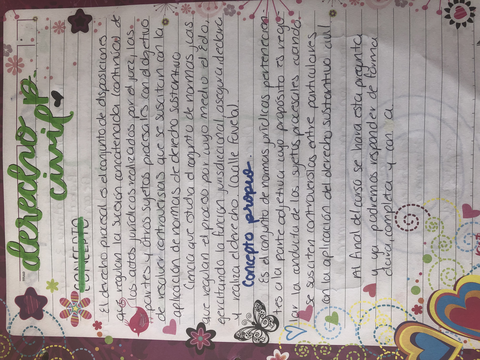 derecho
civil
CONCEPTO
El derecho procesal es el conjunto de disposiciones
que regulan la sucesión concatenada (continuidad) de
los actos jurídicos realizados por el juez, las
partes y otros sujetos procesales con el objetivo
de resolver controversias que se suscitan con la
aplicación de normas de derecho sustantivo
Ciencia que estudia el conjunto de normas y las
que regulan el proceso por cuyo medio el Edo.
ejercitando la función jurisdiccional asegura, declara
y realiza el derecho (Ovalle Favela).
Concepto propio
Es el conjunto de normas jurídicas pertenecien
tes la parte adjetiva cuyo propósito es regu
lar la conducta de los sujetos procesales cuando
se susciten controversias entre particulares
con la aplicación del derecho sustantivo civil
Al final del curso se hará esta pregunta
y ya podremos responder de forma
clara, completa y con